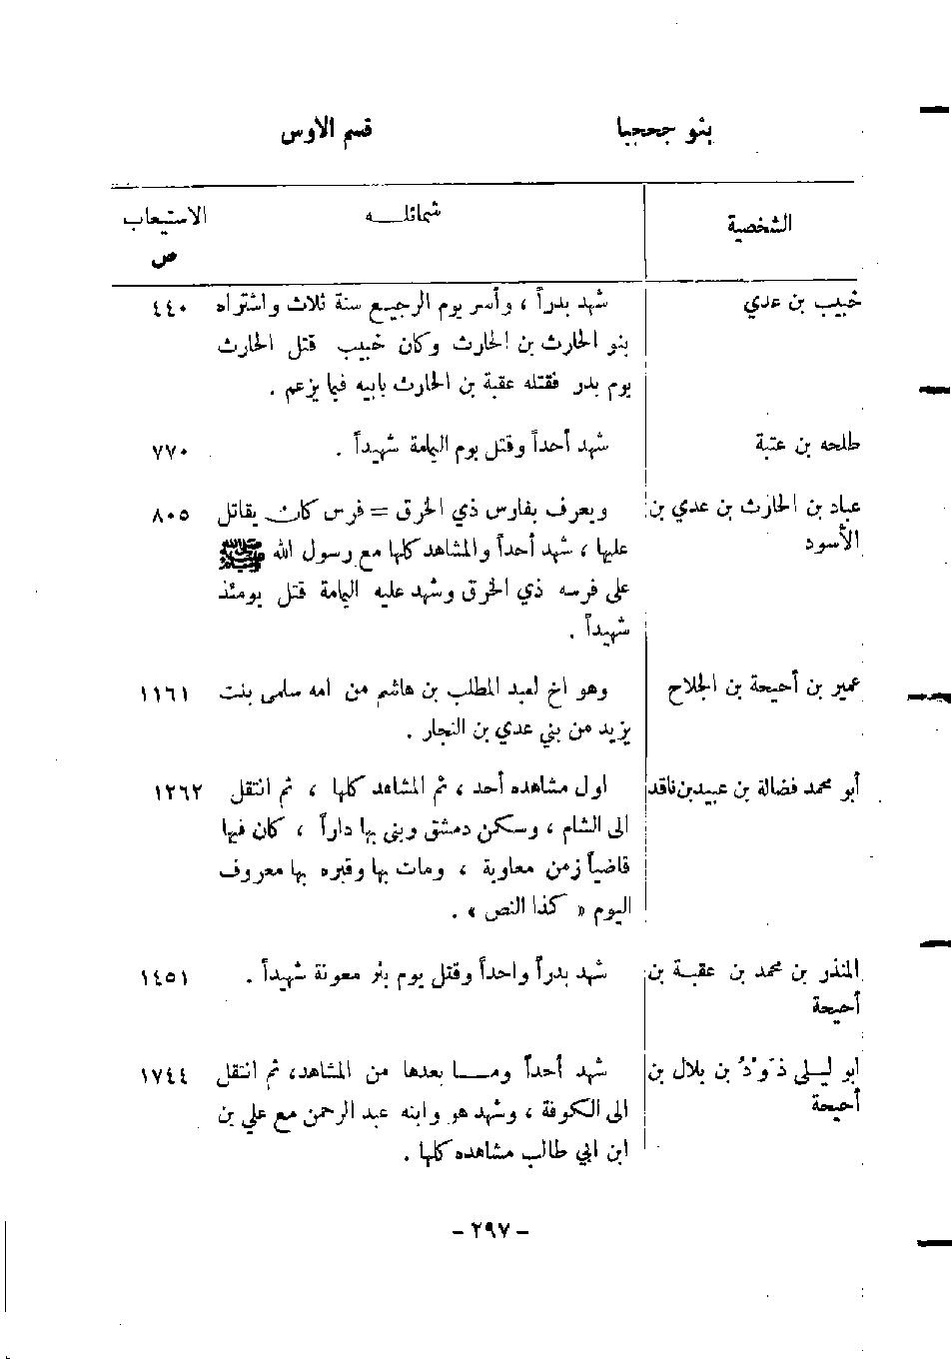 بنو جحجبا قسم الاوس
الشخصية شمائلـــه الاستيعاب
ص
خبيب بن عدي شهد بدراً ، وأسر يوم الرجيـع سنة ثلاث واشتراه ٤٤٠
بنو الحارث بن الحارث وكان خبيب قتل الحارث
يوم بدر فقتله عقبة بن الحارث بابيه فيما يزعم .
طلحه بن عتبة شهد أحداً وقتل يوم اليمامة شهيداً . ٧٧٠
عباد بن الحارث بن عدي بن ويعرف بفارس ذي الخرق = فرس كان يقاتل ٨٠٥
الأسود عليها ، شهد أحداً والمشاهد كلها مع رسول الله ﷺ
على فرسه ذي الخرق وشهد عليه اليمامة قتل يومئذ
شهيداً .
عمير بن أحيحة بن الجلاح وهو اخ لعبد المطلب بن هاشم من امه سلمى بنت ١١٦١
يزيد من بني عدي بن النجار .
أبو محمد فضالة بن عبيد بن ناقد اول مشاهده أحد ، ثم المشاهد كلها ، ثم انتقل ١٢٦٢
الى الشام ، وسكن دمشق وبنى بها داراً ، كان فيها
قاضياً زمن معاوية ، ومات بها وقبره بها معروف
اليوم « كذا النص » .
المنذر بن محمد بن عقبـة بن شهد بدراً واحداً وقتل يوم بئر معونة شهيداً . ١٤٥١
أحيحة
ابو ليـلى ذَوْدُ بن بلال بن شهد أحداً ومـــا بعدها من المشاهد، ثم انتقل ١٧٤٤
أحيحة الى الكوفة ، وشهد هو وابنه عبد الرحمن مع علي بن
ابن ابي طالب مشاهده كلها .
- ٢٩٧ -